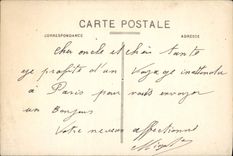 CARTE POSTALE
CORRESPONDANCE
ADRESSE
Cher oncle et chère tante
je profite d'un voyage inattendu
à Paris pour vous envoyer
un Bonjour
Votre neveu affectionné